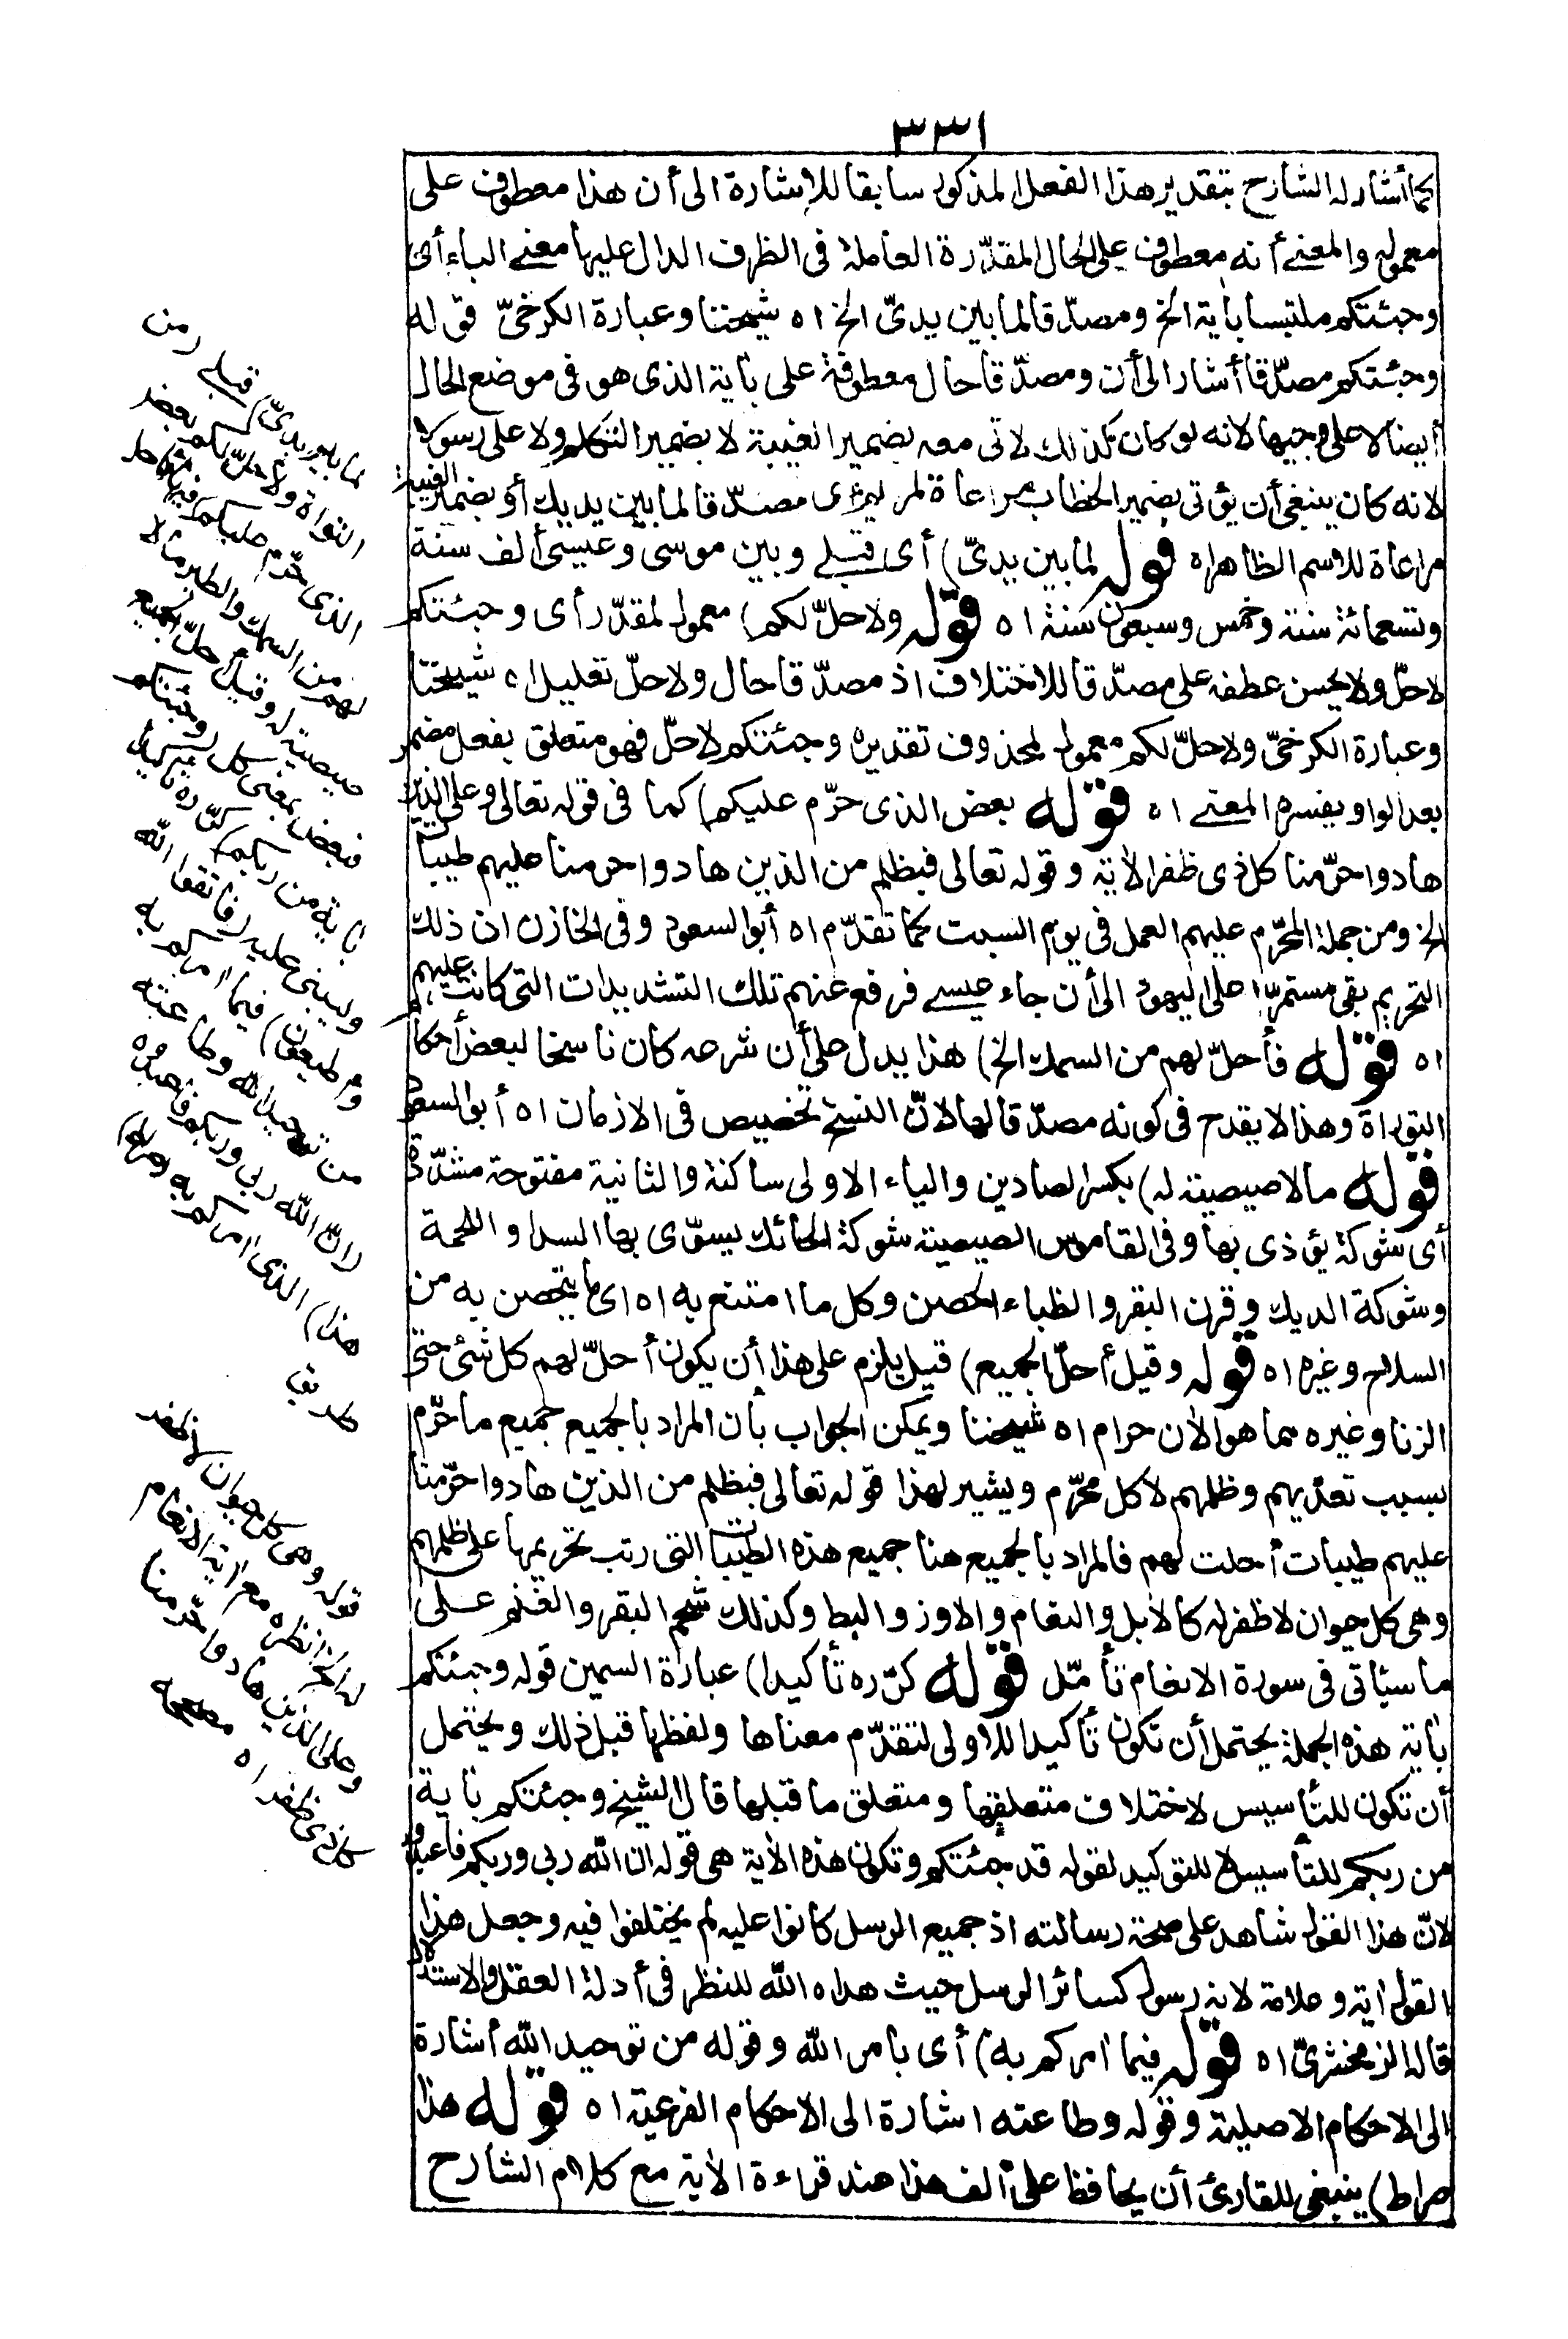 ٣٣١
كما أشار له الشارح بتقدير هذا الفعل المذكور سابقا للإشارة الى أن هذا معطوف على
معموله والمعنى أنه معطوف على الحال المقدّرة العاملة فى الظرف الدال عليها معنى الباء أى
وجئتكم ملتبسا بأية الخ ومصدّقا لما بين يدىّ الخ اه شيخنا وعبارة الكرخىّ قوله
وجئتكم مصدّقا أشار الى أن ومصدّقا حال معطوفة على بأية الذى هو فى موضع الحال
أيضا لا على وجيها لانه لو كان كذلك لأتى معه بضمير الغيبة لا بضمير التكلم ولا على رسولا
لانه كان ينبغى أن يؤتى بضمير الخطاب مراعاة لمريم أى مصدّقا لما بين يديك أو بضمير الغيبة
مراعاة للاسم الظاهر اه قوله لما بين يدىّ) أى قبلى وبين موسى وعيسى ألف سنة
وتسعمائة سنة وخمس وسبعون سنة اه قوله ولاحلّ لكم) معمول لمقدّر أى وجئتكم
لاحلّ ولا يحسن عطفه على مصدّقا للاختلاف اذ مصدّقا حال ولاحلّ تعليل اه شيخنا
وعبارة الكرخىّ ولاحلّ لكم معمول لمحذوف تقديره وجئتكم لاحلّ فهو متعلق بفعل مضمر
بعد الواو يفسره المعنى اه قوله بعض الذى حرّم عليكم) كما فى قوله تعالى وعلى الذين
هادوا حرّمنا كل ذى ظفر الأية وقوله تعالى فبظلم من الذين هادوا حرمنا عليهم طيبات
الخ ومن جملة المحرّم عليهم العمل فى يوم السبت كما تقدّم اه أبو السعود وفى الخازن ان ذلك
التحريم بقى مستمرّا على اليهود الى أن جاء عيسى فرفع عنهم تلك التشديدات التى كانت عليهم
اه قوله فأحلّ لهم من السمك الخ) هذا يدل على أن شرعه كان ناسخا لبعض أحكام
التوراة وهذا لا يقدح فى كونه مصدّقا لها لانّ النسخ تخصيص فى الازمان اه أبو السعود
قوله ما لا صيصية له) بكسر الصادين والياء الاولى ساكنة والثانية مفتوحة مشدّدة
أى شوكة يؤذى بها وفى القاموس الصيصية شوكة الحائك يسوّى بها السدا واللحمة
وشوكة الديك وقرن البقر والظباء والحصن وكل ما امتنع به اه اى ما يتحصن به من
السلاح وغيره اه قوله وقيل أحلّ الجميع) قيل يلزم على هذا أن يكون أحلّ لهم كل شئ حتى
الزنا وغيره مما هو الأن حرام اه شيخنا ويمكن الجواب بأن المراد بالجميع جميع ما حرّم
بسبب تعدّيهم وظلمهم لا كل محرّم ويشير لهذا قوله تعالى فبظلم من الذين هادوا حرّمنا
عليهم طيبات أحلت لهم فالمراد بالجميع هنا جميع هذه الطيبات التى رتب تحريمها على ظلمهم
وهى كل حيوان لا ظفر له كالابل والنعام والاوز والبط وكذلك شحم البقر والغنم على
ما سيأتى فى سورة الانعام تأمّل قوله كرّره تأكيدا) عبارة السمين قوله وجئتكم
بأية هذه الجملة يحتمل أن تكون تأكيدا للاولى لتقدّم معناها ولفظها قبل ذلك ويحتمل
أن تكون للتأسيس لاختلاف متعلقها ومتعلق ما قبلها قال الشيخ وجئتكم بأية
من ربكم للتأسيس لا للتوكيد لقوله قد جئتكم وتكون هذه الأية هى قوله ان الله ربى وربكم فاعبدوه
لانّ هذا القول شاهد على صحة رسالته اذ جميع الرسل كانوا عليه لم يختلفوا فيه وجعل هذا
القول أية وعلامة لانه رسول كسائر الرسل حيث هداه الله للنظر فى أدلة العقل والاستدلال
قاله الزمخشرىّ اه قوله فيما امركم به) أى بامر الله وقوله من توحيد الله أشارة
الى الاحكام الاصلية وقوله وطاعته اشارة الى الاحكام الفرعية اه قوله هذا
صراط) ينبغى للقارئ أن يحافظ على ألف هذا عند قراءة الأية مع كلام الشارح
لما بين يدىّ) قبلى (من
التوراة ولأحلّ لكم بعض
الذى حرّم عليكم) فيها فأحل
لهم من السمك والطير ما لا
صيصية له وقيل أحلّ الجميع
فبعض بمعنى كل (وجئتكم
بأية من ربكم) كرّره تأكيدا
وليبنى عليه (فاتقوا الله
وأطيعون) فيما امركم به
من توحيد الله وطاعته
(انّ الله ربى وربكم فاعبدوه
هذا) الذى امركم به (صراط)
قوله وهى كل حيوان لا ظفر
له الخ انظره مع اية الانعام
وعلى الذين هادوا حرّمنا
كل ذى ظفر اه مصححه